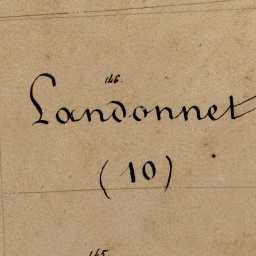 146.
Landonnet
(10)
145.